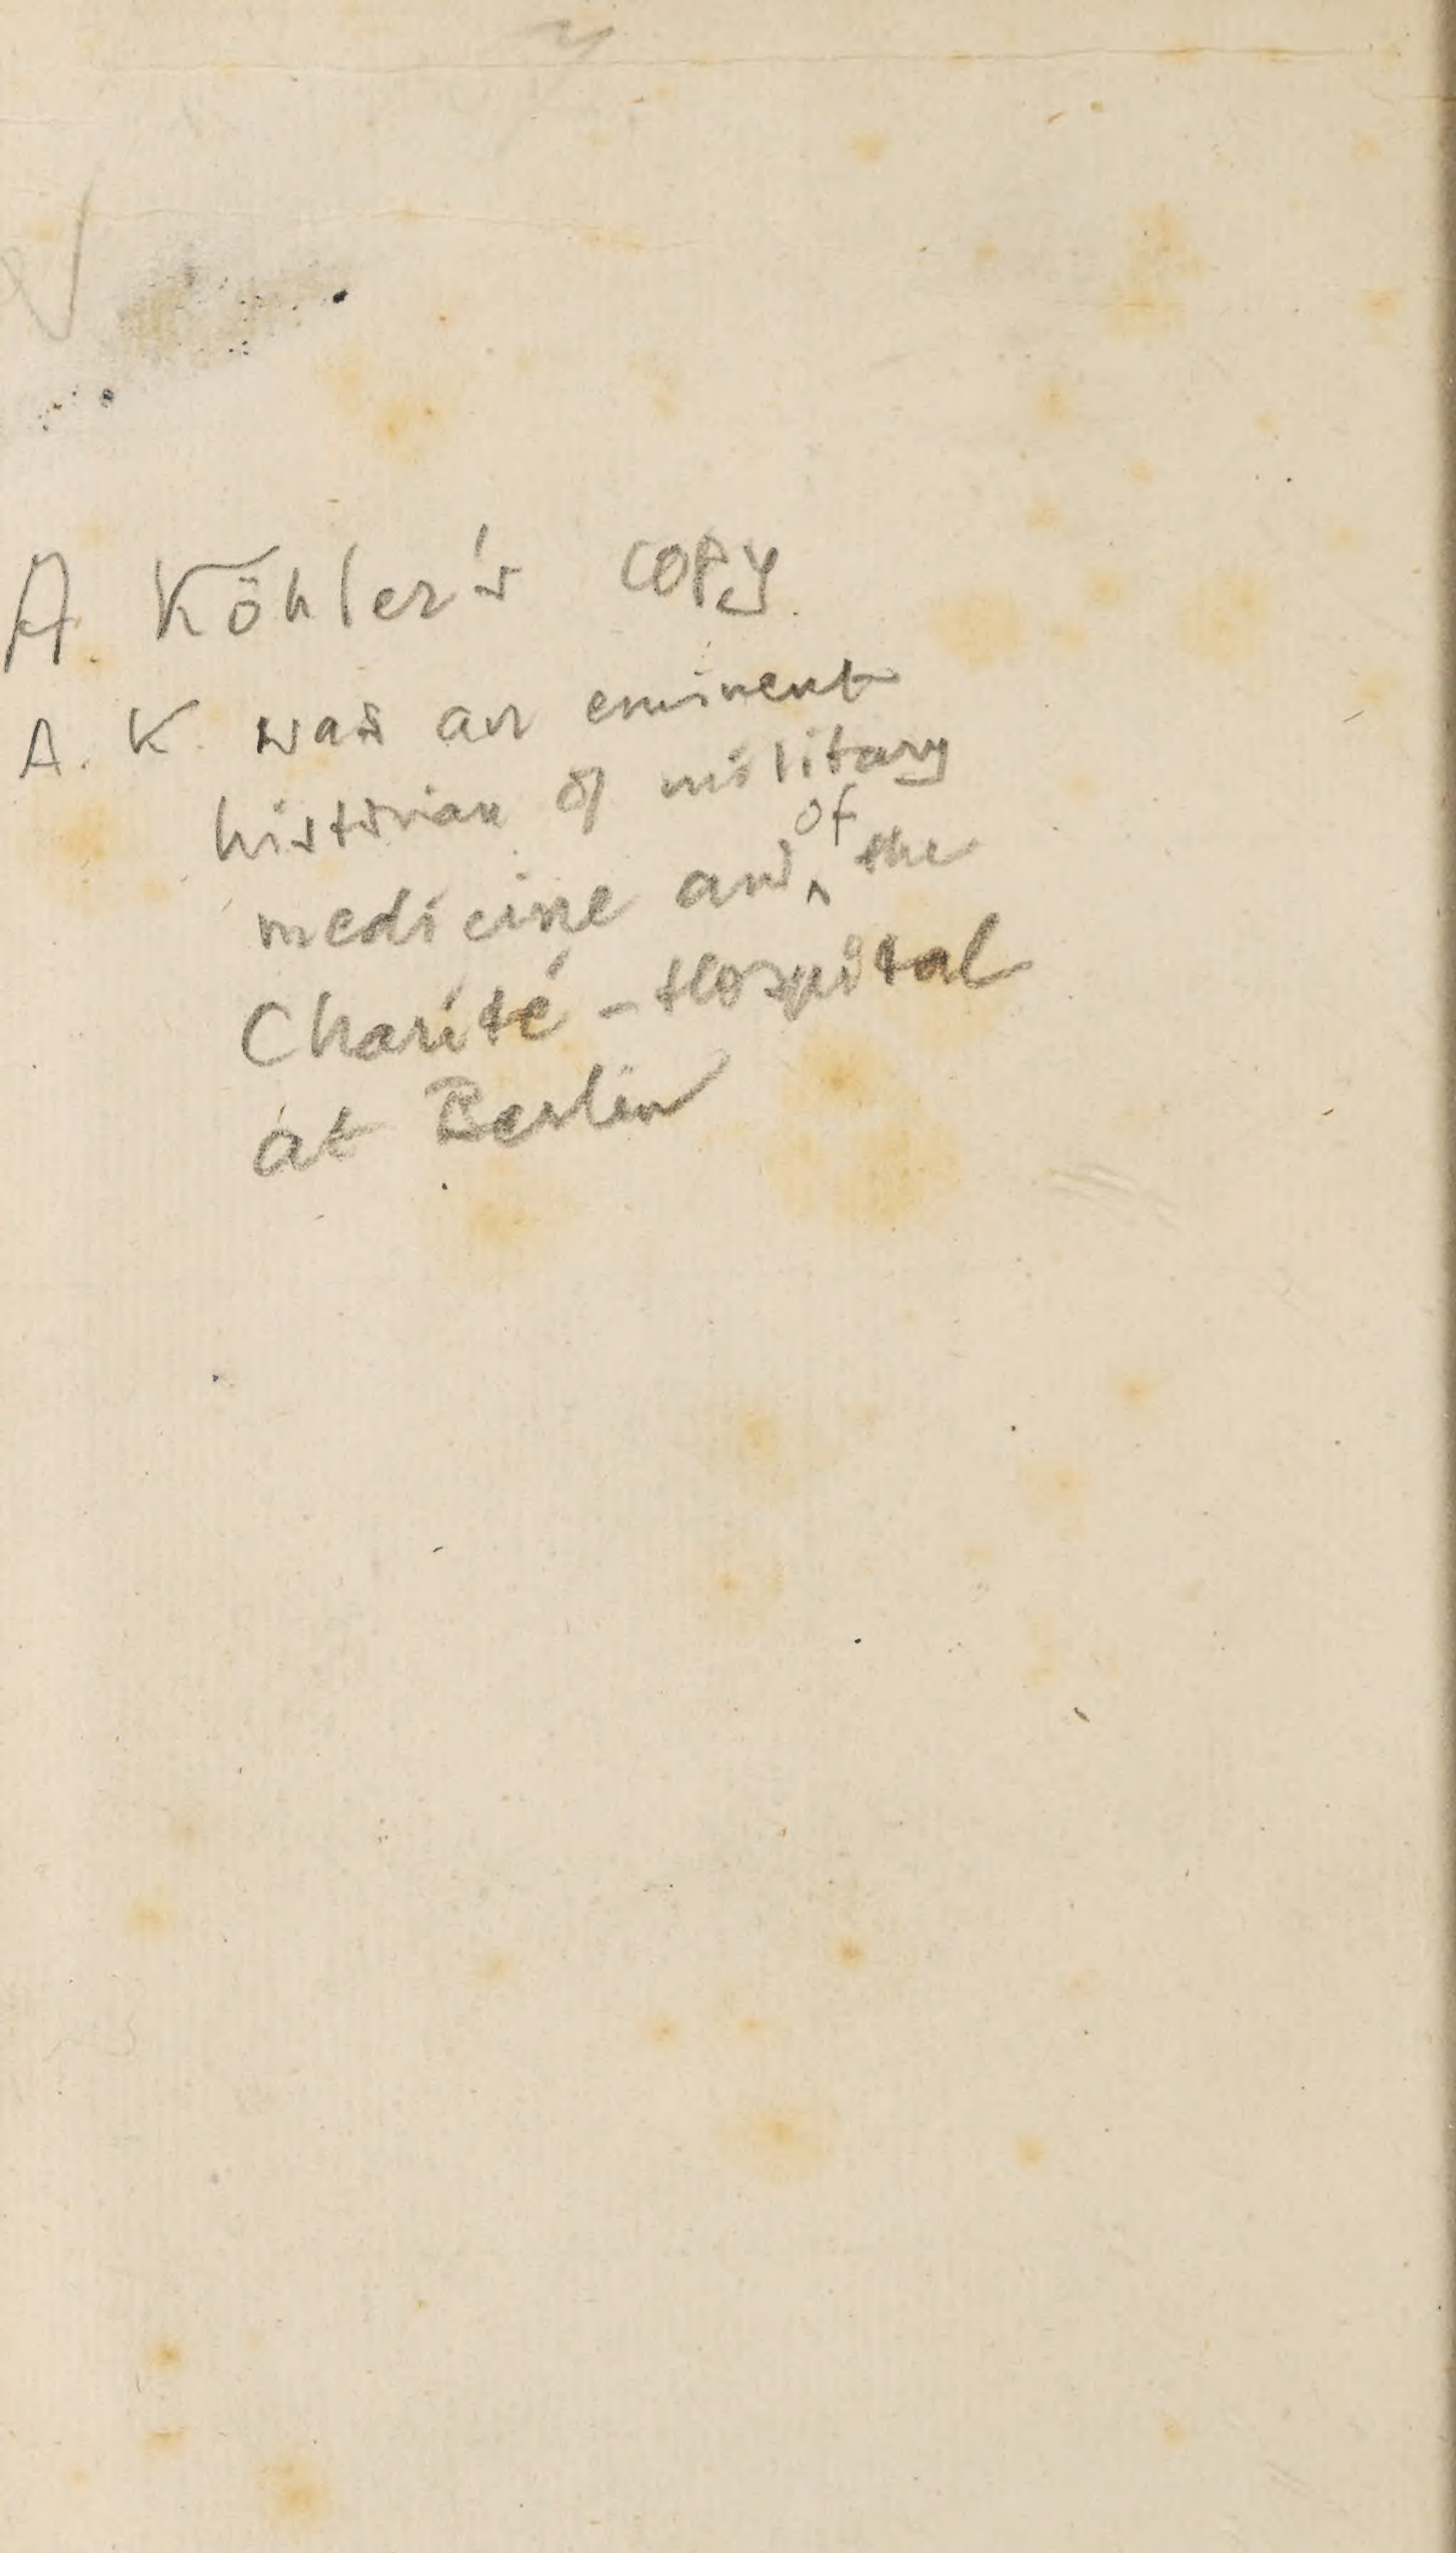 A. Köhler's copy.
A. K. was an eminent
historian of military
medicine and of the
Charité - Hospital
at Berlin